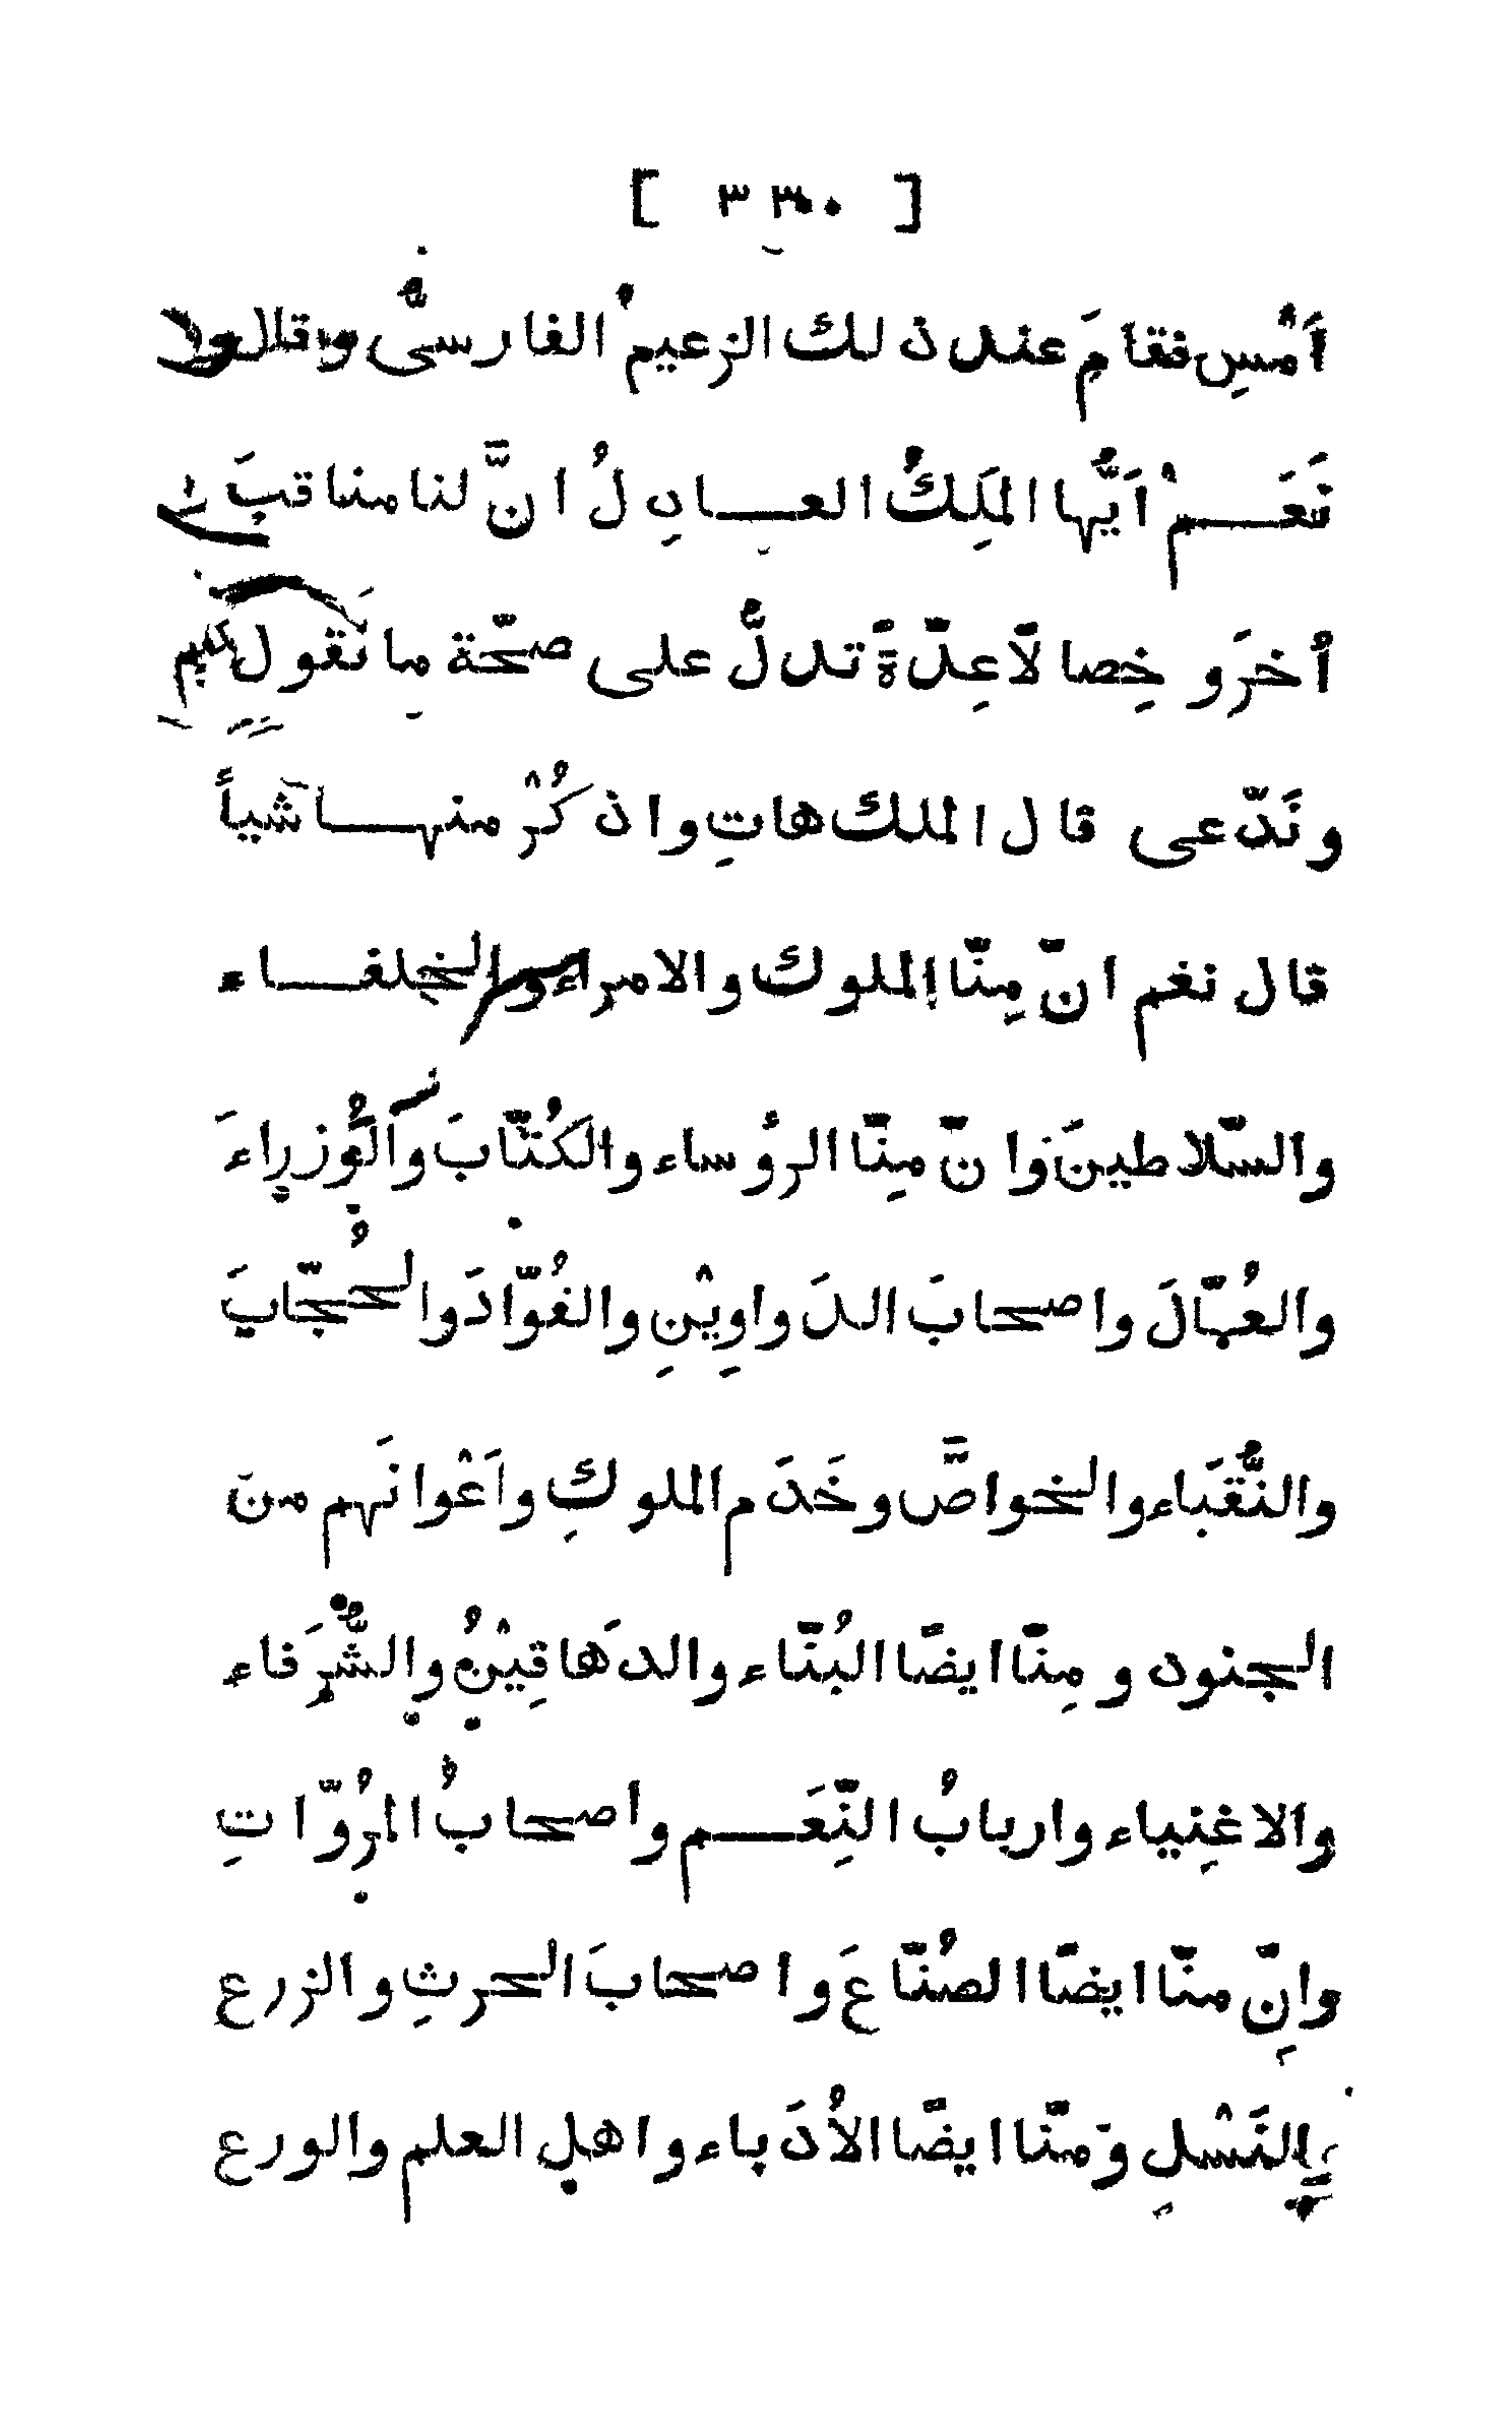 [ ٣٣٠ ]
أَمْسِ فقامَ عند ذلك الزعيمُ الفارسىُّ وقال
نَعَمْ اَيُّها المَلِكُ العادِلُ انَّ لنا مناقبَ
أُخرَو خِصالًا عِدّةً تدلُّ على صحّة ما نَقول
ونَدّعى قال الملك هاتِ واذكُرْ منها شيأً
قال نغم انّ مِنّا الملوك والامراء والخلفاء
والسّلاطينَ وانّ مِنّا الرؤساء والكُتّابَ والُوزراءَ
والعُمّالَ واصحابَ الدَواوِيْنِ والقُوّادَ والحُجّابَ
والنُّقَباء والخواصَّ وخَدَم الملوكِ واَعْوانَهم منَ
الجنود ومِنّا ايضًا البُنّاء والدَهاقِيْنُ والشُّرَفاء
والاغنِياء واربابُ النِّعَم واصحابُ المرُوّاتِ
وانِّ منّا ايضًا الصُنّاعَ واصحابَ الحرثِ والزرع
والنَسْلِ ومنّا ايضًا الاُدَباء واهلِ العلم والورع